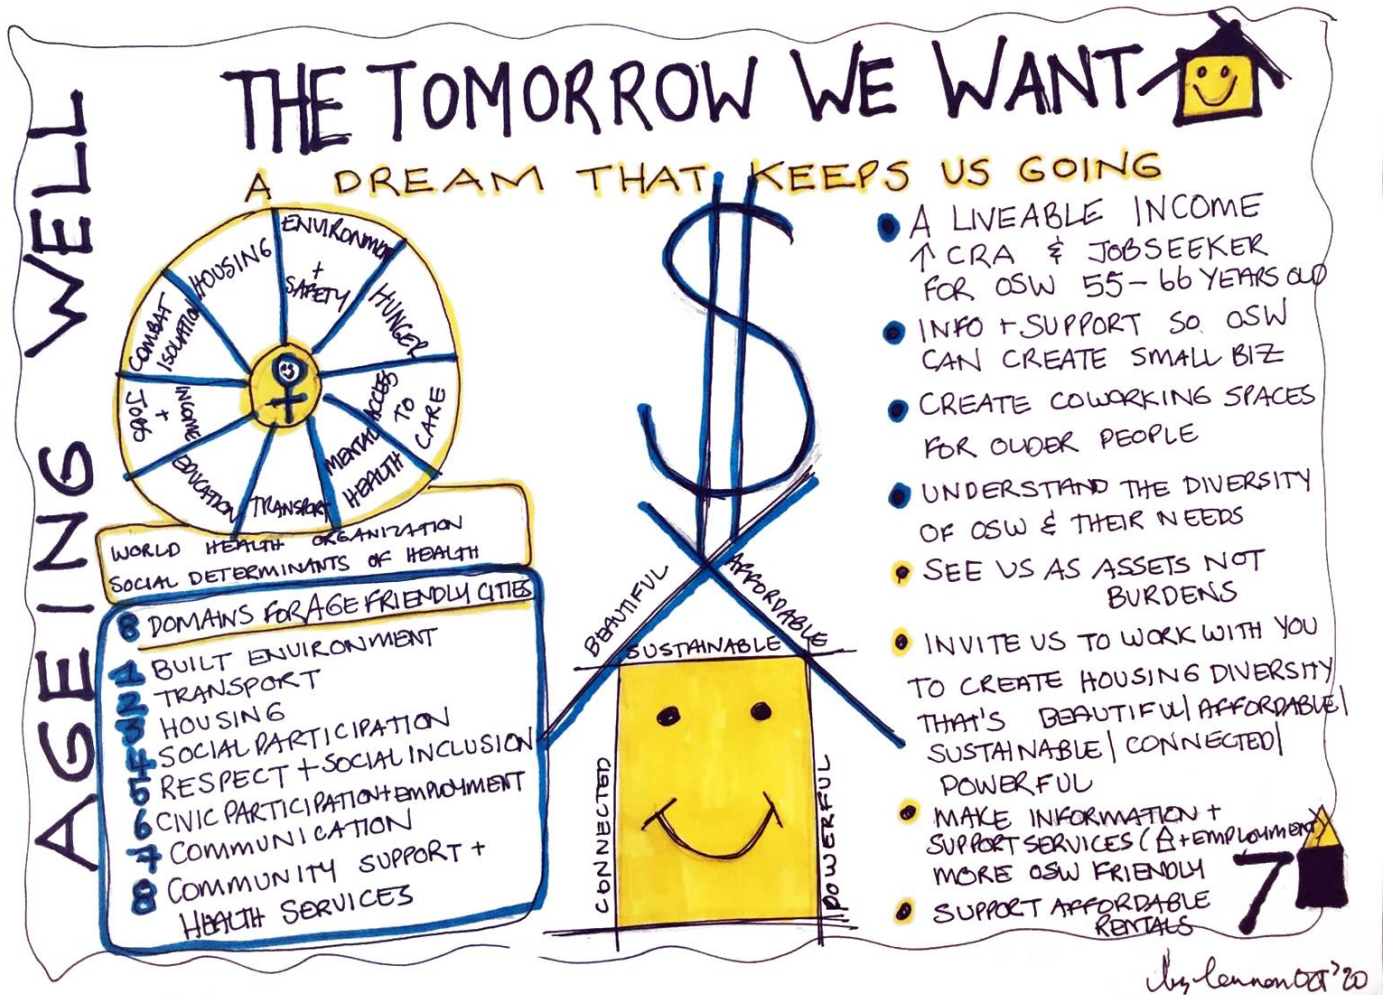 THE TOMORROW WE WANT
A DREAM THAT KEEPS US GOING
AGEING WELL
HOUSING
ENVIRONMENT
+
SAFETY
HUNGER
ACCESS
TO
CARE
MENTAL
HEALTH
TRANSPORT
EDUCATION
INCOME
+
JOBS
COMBAT
ISOLATION
WORLD HEALTH ORGANIZATION
SOCIAL DETERMINANTS OF HEALTH
8 DOMAINS FOR AGE FRIENDLY CITIES
1 BUILT ENVIRONMENT
2 TRANSPORT
3 HOUSING
4 SOCIAL PARTICIPATION
5 RESPECT + SOCIAL INCLUSION
6 CIVIC PARTICIPATION + EMPLOYMENT
7 COMMUNICATION
8 COMMUNITY SUPPORT +
HEALTH SERVICES
$
BEAUTIFUL
AFFORDABLE
SUSTAINABLE
CONNECTED
POWERFUL
A LIVEABLE INCOME
↑ CRA & JOBSEEKER
FOR OSW 55-66 YEARS OLD
INFO + SUPPORT SO OSW
CAN CREATE SMALL BIZ
CREATE COWORKING SPACES
FOR OLDER PEOPLE
UNDERSTAND THE DIVERSITY
OF OSW & THEIR NEEDS
SEE US AS ASSETS NOT
BURDENS
INVITE US TO WORK WITH YOU
TO CREATE HOUSING DIVERSITY
THAT'S BEAUTIFUL/AFFORDABLE/
SUSTAINABLE/CONNECTED/
POWERFUL
MAKE INFORMATION +
SUPPORT SERVICES (+EMPLOYMENT)
MORE OSW FRIENDLY
SUPPORT AFFORDABLE
RENTALS
7
lennon OCT '20